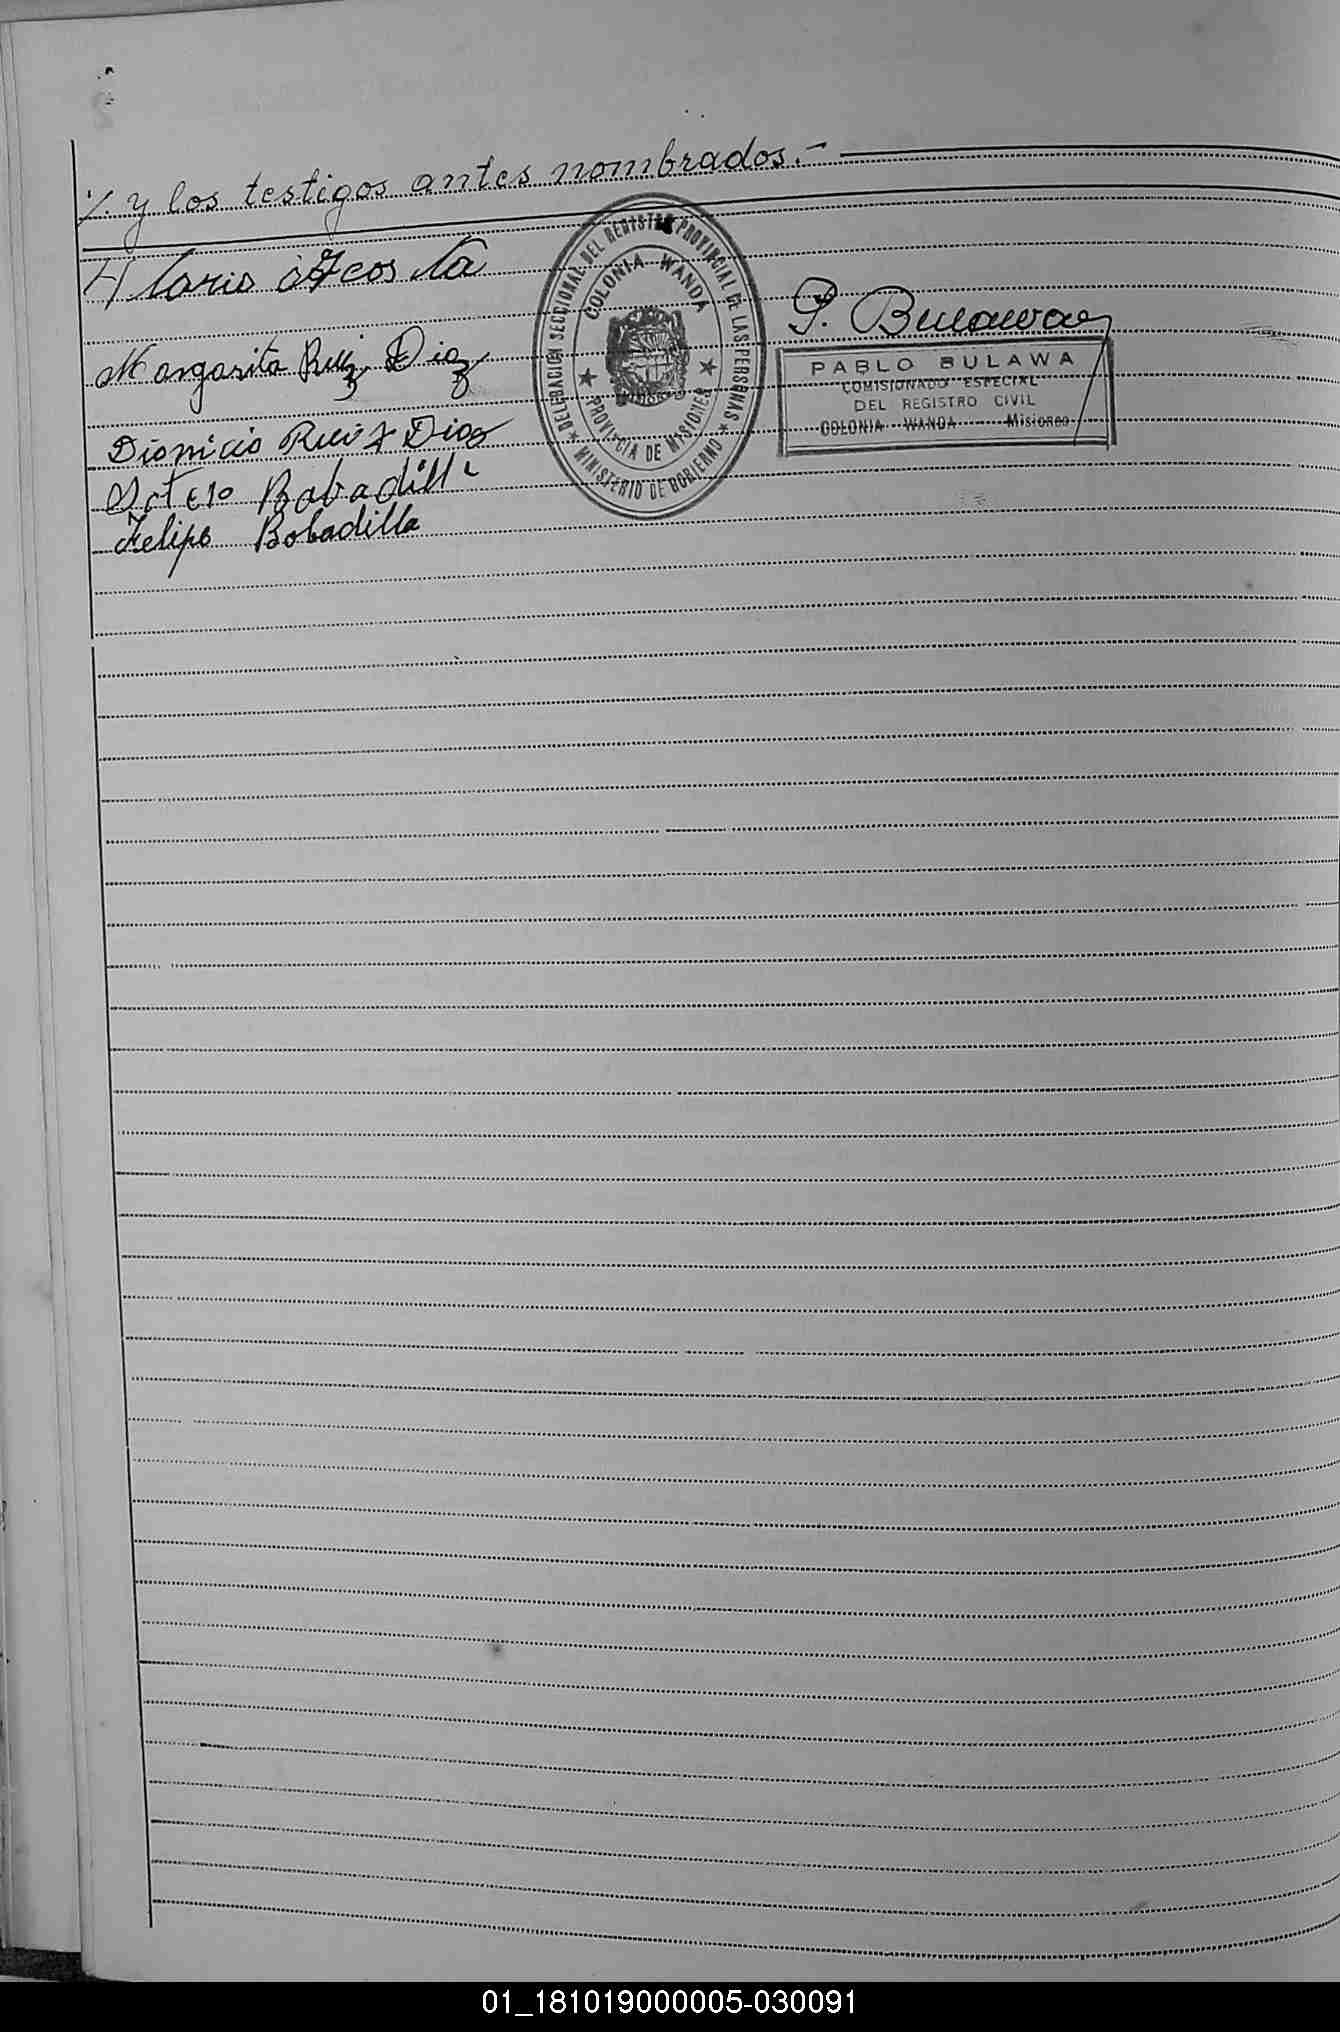 ./. y los testigos antes nombrados.-
Ilario Acosta
Margarita Ruiz Diaz
Dionicio Ruiz Diaz
Felipe Bobadilla
DELEGACION SECCIONAL DEL REGISTRO PROVINCIAL DE LAS PERSONAS
★ MINISTERIO DE GOBIERNO ★
COLONIA WANDA
★ PROVINCIA DE MISIONES ★
P. Bulawa
PABLO BULAWA
COMISIONADO ESPECIAL
DEL REGISTRO CIVIL
COLONIA WANDA - Misiones
01_181019000005-030091